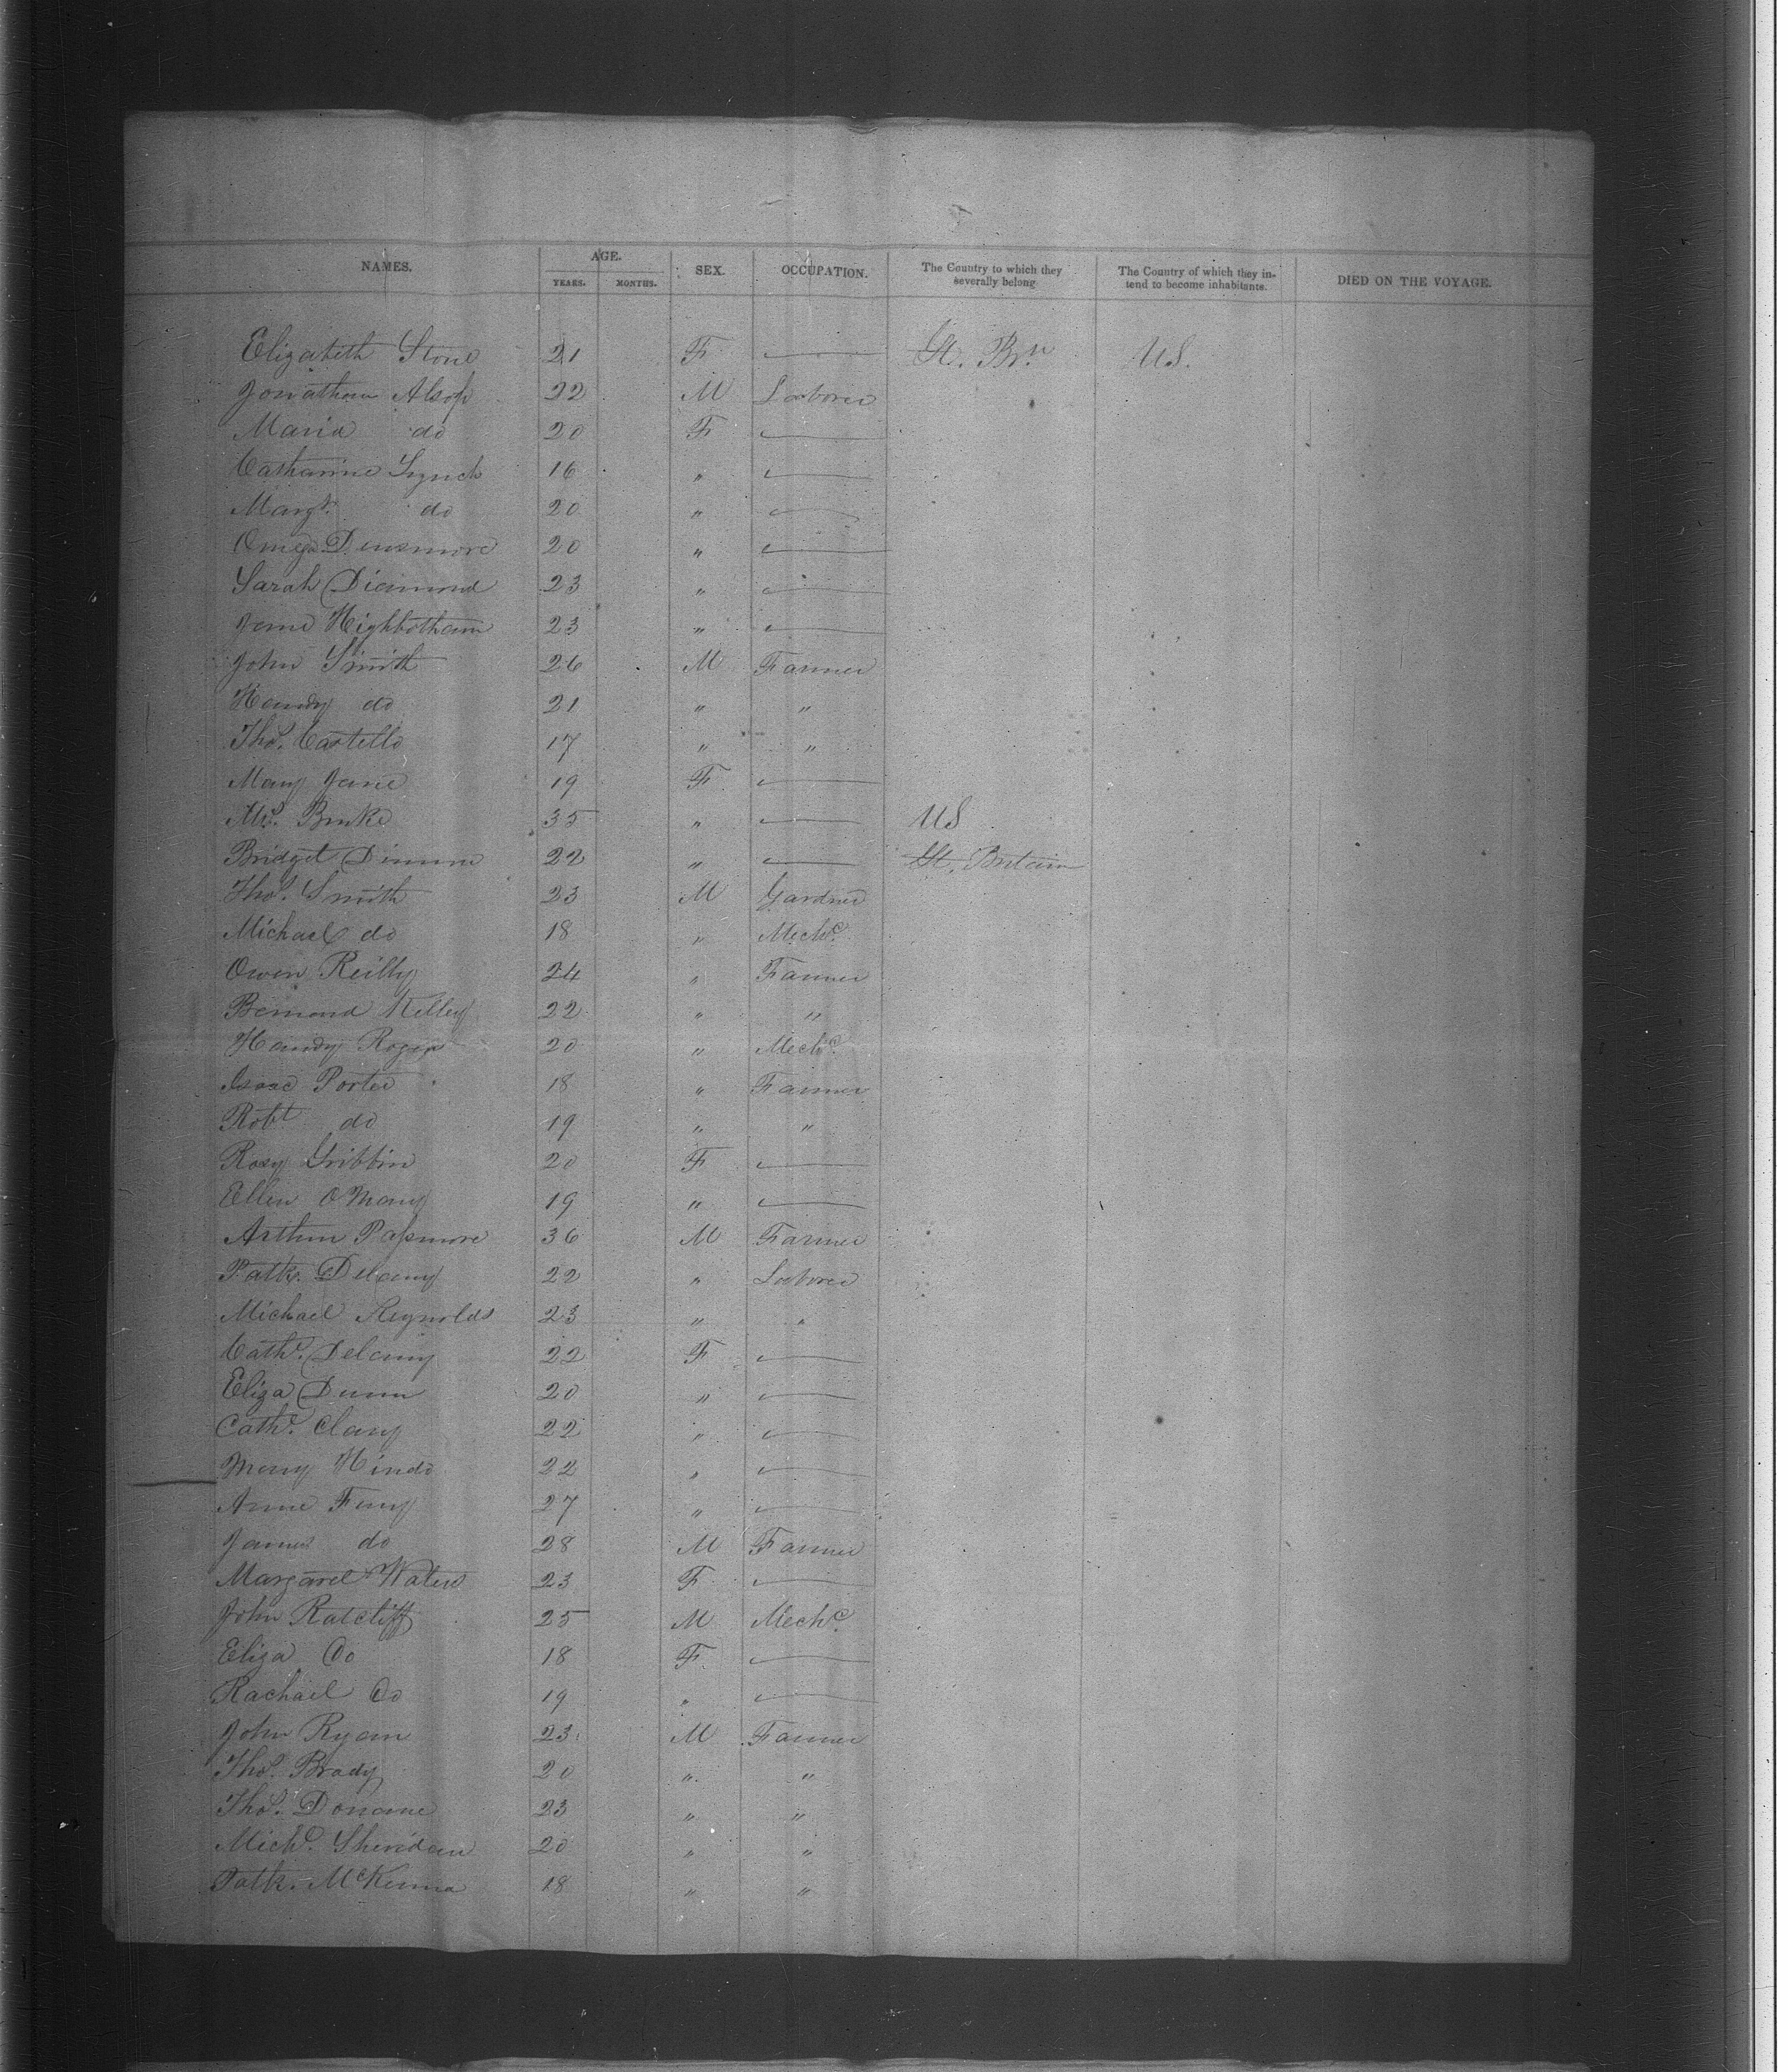 NAMES. AGE. YEARS. MONTHS. SEX. OCCUPATION. The Country to which they severally belong The Country of which they intend to become inhabitants. DIED ON THE VOYAGE.
Elizabeth Stone 21 F — Gt. Brn U.S.
Jonathan Alsop 22 M Laborer
Maria do 20 F —
Catharine Lynch 16 " —
Margt. do 20 " —
Densmore 20 " —
Sarah Diamond 23 " —
Jane Highbotham 23 " —
John Smith 26 M Farmer
Handy do 21 " "
Thos. Castello 17 " "
Mary Jane 19 F —
Mrs. Burke 35 " — US
Bridget 22 " — Gt. Britain
Thos. Smith 23 M Gardner
Michael do 18 " Mechc.
Owen Reilly 24 " Farmer
Bernard Kelley 22 " "
Handy Roger 20 " Mechc.
Isaac Porter 18 " Farmer
Robt do 19 " "
Rosy Gribbin 20 F —
Ellen OMany 19 " —
Arthur Passmore 36 M Farmer
Patk. Delany 22 " Laborer
Michael Reynolds 23 " "
Cathe. Delany 22 F —
Eliza Dunn 20 " —
Cathe. Clany 22 " —
Mary Hinds 22 " —
Anne 27 " —
James do 28 M Farmer
Margaret Waters 23 F —
John Ratcliff 25 M Mechc.
Eliza Do 18 F —
Rachael Do 19 " —
John Ryan 23 M Farmer
Thos. Brady 20 " "
Thos. Doname 23 " "
Michl. Sheridan 20 " "
Patk. McKenna 18 " "